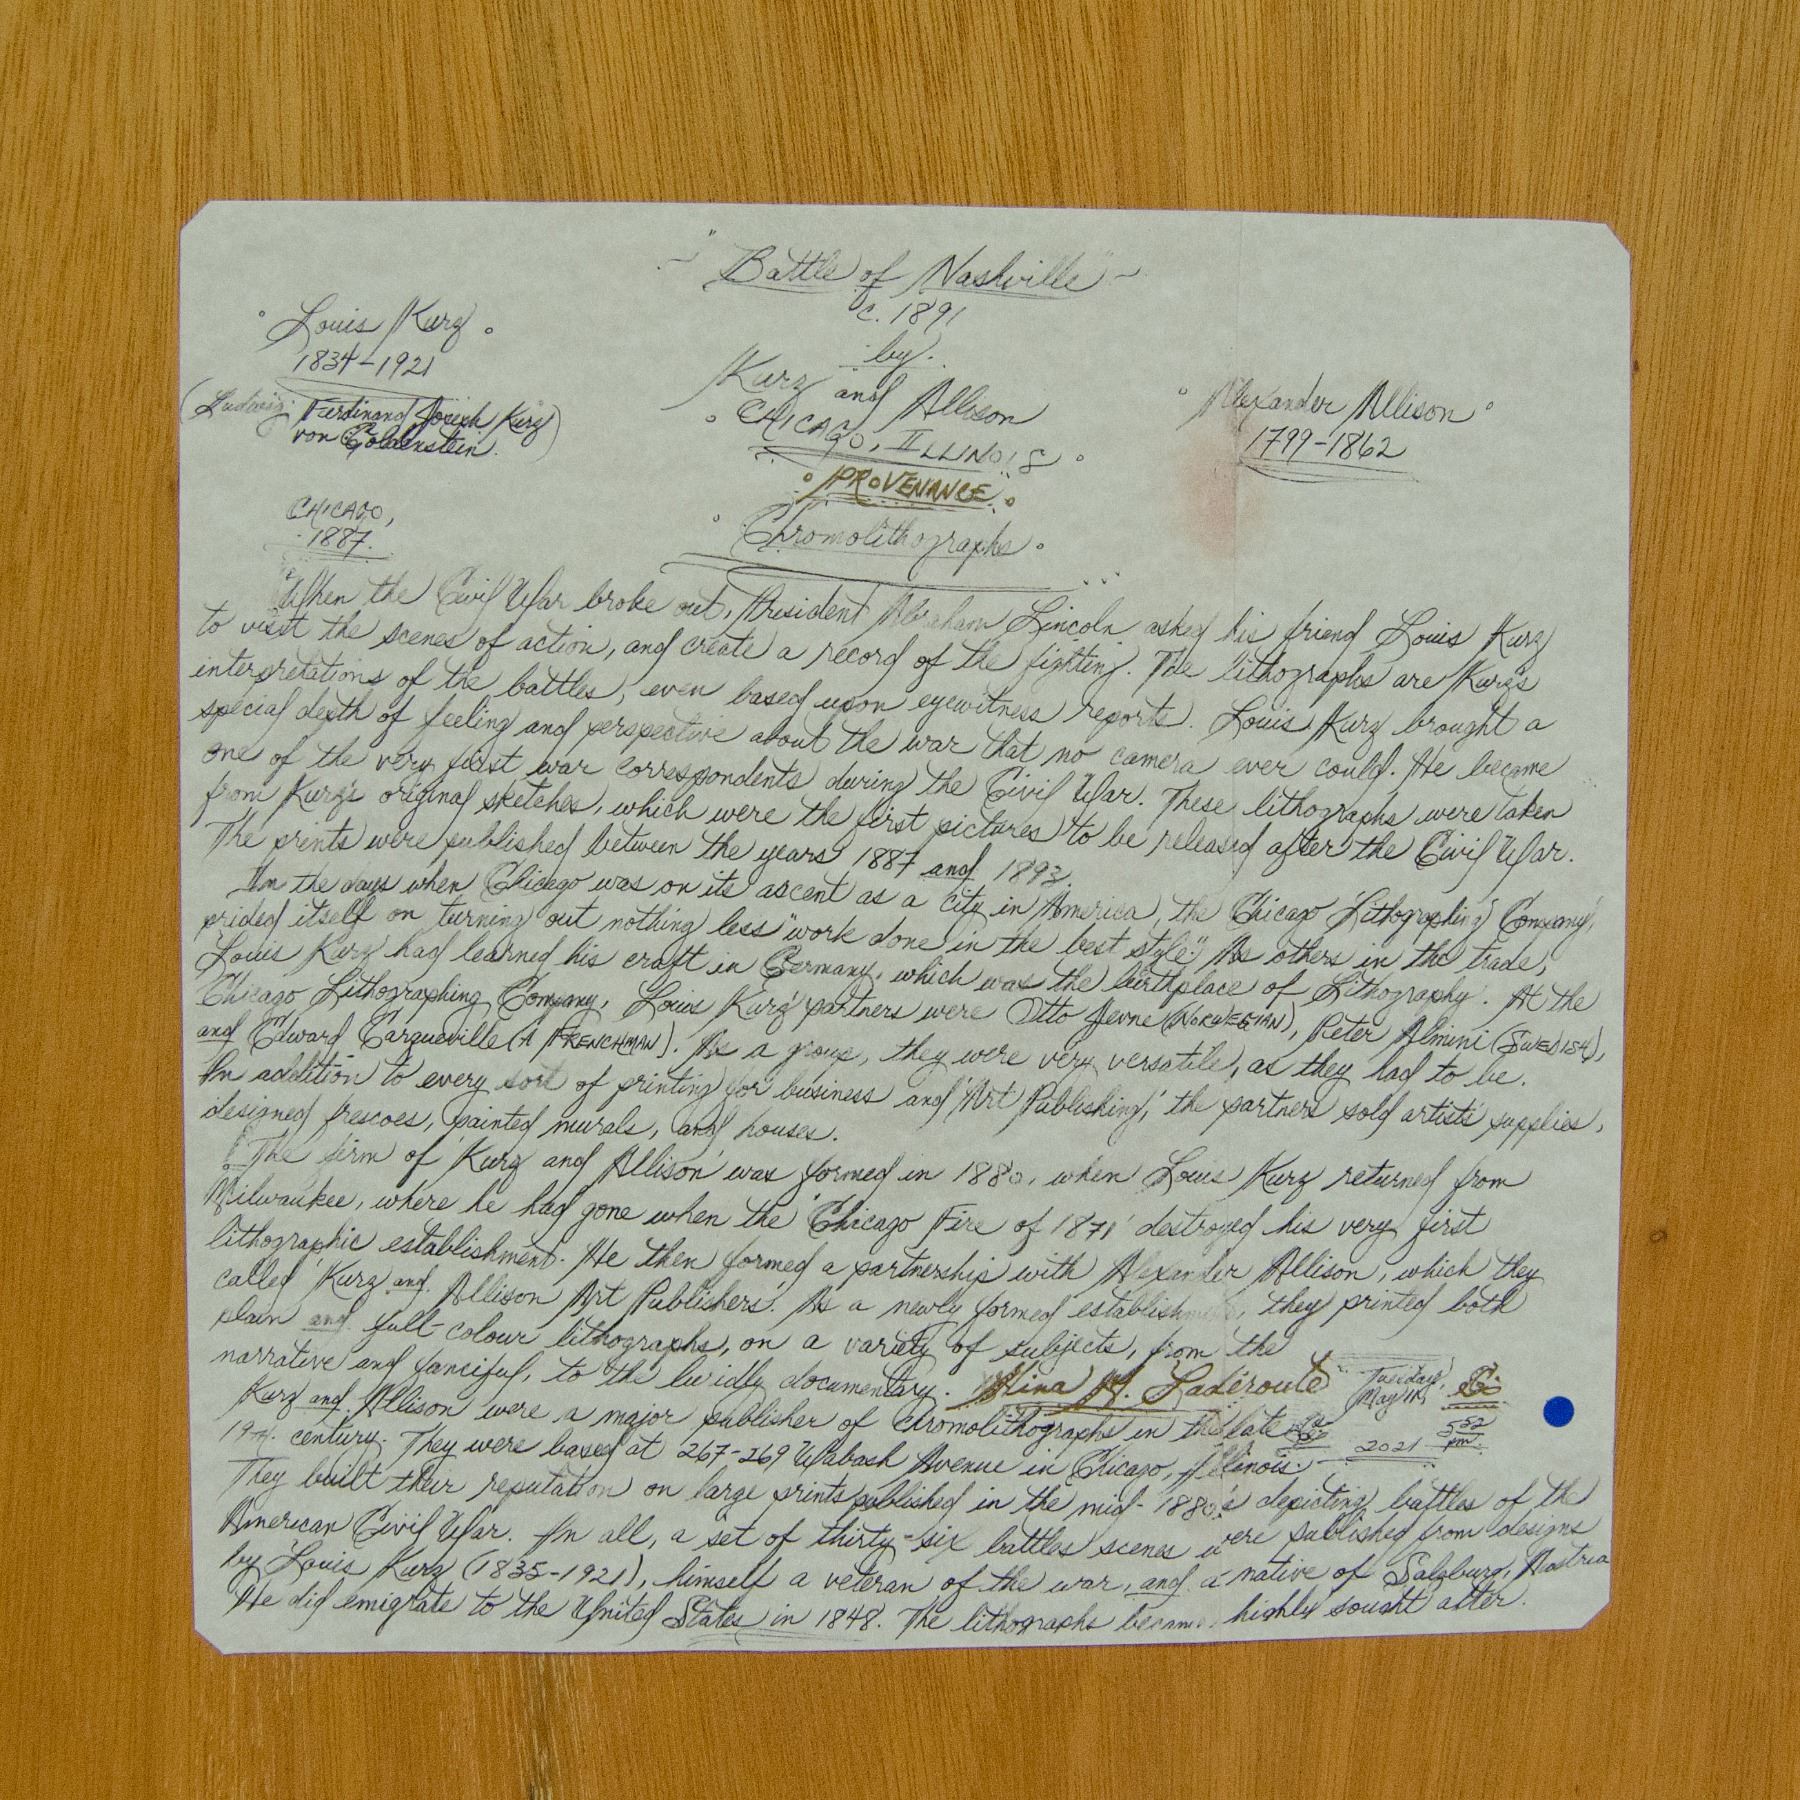 ~ "Battle of Nashville" ~
c. 1891
by
Kurz and Allison
CHICAGO, ILLINOIS
PROVENANCE
Chromolithographs
Louis Kurz
1834-1921
(Ludwig Ferdinand Joseph Kurz
von Goldenstein)
CHICAGO,
1887.
Alexander Allison
1799-1862
When the Civil War broke out, President Abraham Lincoln asked his friend Louis Kurz
to visit the scenes of action, and create a record of the fighting. The lithographs are Kurz's
interpretations of the battles, even based upon eyewitness reports. Louis Kurz brought a
special depth of feeling and perspective about the war that no camera ever could. He became
one of the very first war correspondents during the Civil War. These lithographs were taken
from Kurz's original sketches, which were the first pictures to be released after the Civil War.
The prints were published between the years 1887 and 1893.
In the days when Chicago was on its ascent as a city in America, the 'Chicago Lithographing Company,'
prided itself on turning out nothing less "work done in the best style". As others in the trade,
Louis Kurz had learned his craft in Germany, which was the birthplace of Lithography. At the
Chicago Lithographing Company, Louis Kurz' partners were Otto Jevne (NORWEGIAN), Peter Almini (SWEDISH),
and Edward Carqueville (A FRENCHMAN). As a group, they were very versatile, as they had to be.
In addition to every sort of printing for business and 'Art Publishing,' the partners sold artists' supplies,
designed frescoes, painted murals, and houses.
The firm of 'Kurz and Allison' was formed in 1880, when Louis Kurz returned from
Milwaukee, where he had gone when the 'Chicago Fire of 1871' destroyed his very first
lithographic establishment. He then formed a partnership with Alexander Allison, which they
called 'Kurz and Allison Art Publishers'. As a newly formed establishment, they printed both
plain and full-colour lithographs, on a variety of subjects, from the
narrative and fanciful, to the luridly documentary. Nina M. Laderoute Tuesday, May 11
Kurz and Allison were a major publisher of chromolithographs in the late 5:52 pm.
19th. century. They were based at 267-269 Wabash Avenue in Chicago, Illinois. 2021
They built their reputation on large prints published in the mid-1880's depicting battles of the
American Civil War. In all, a set of thirty-six battles scenes were published from designs
by Louis Kurz (1835-1921), himself a veteran of the war, and a native of Salzburg, Austria
He did emigrate to the United States in 1848. The lithographs became highly sought after.